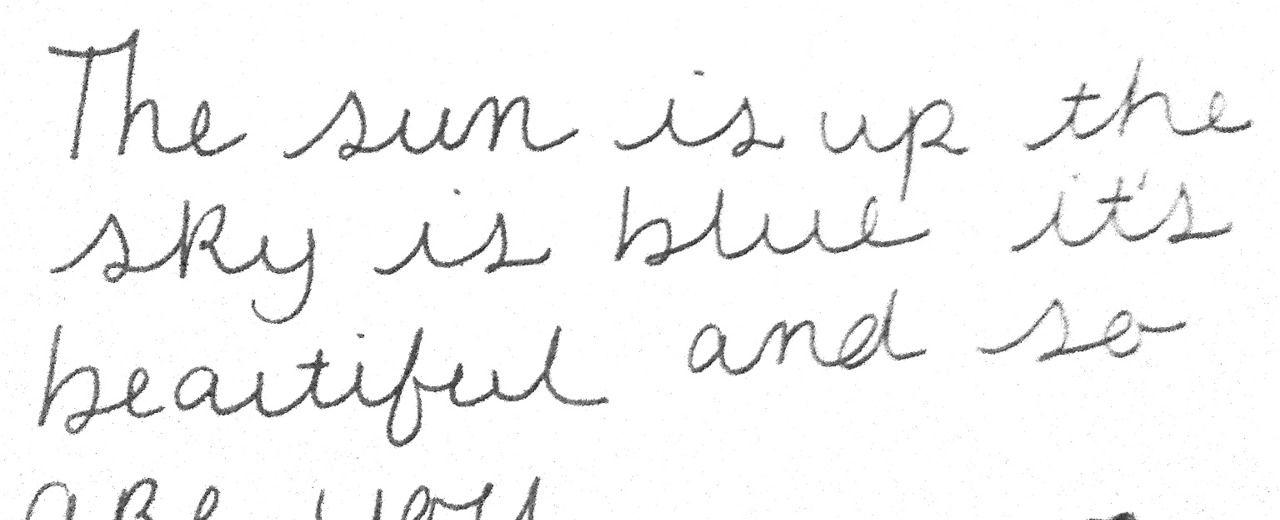 The sun is up the
sky is blue it's
beautiful and so
are you